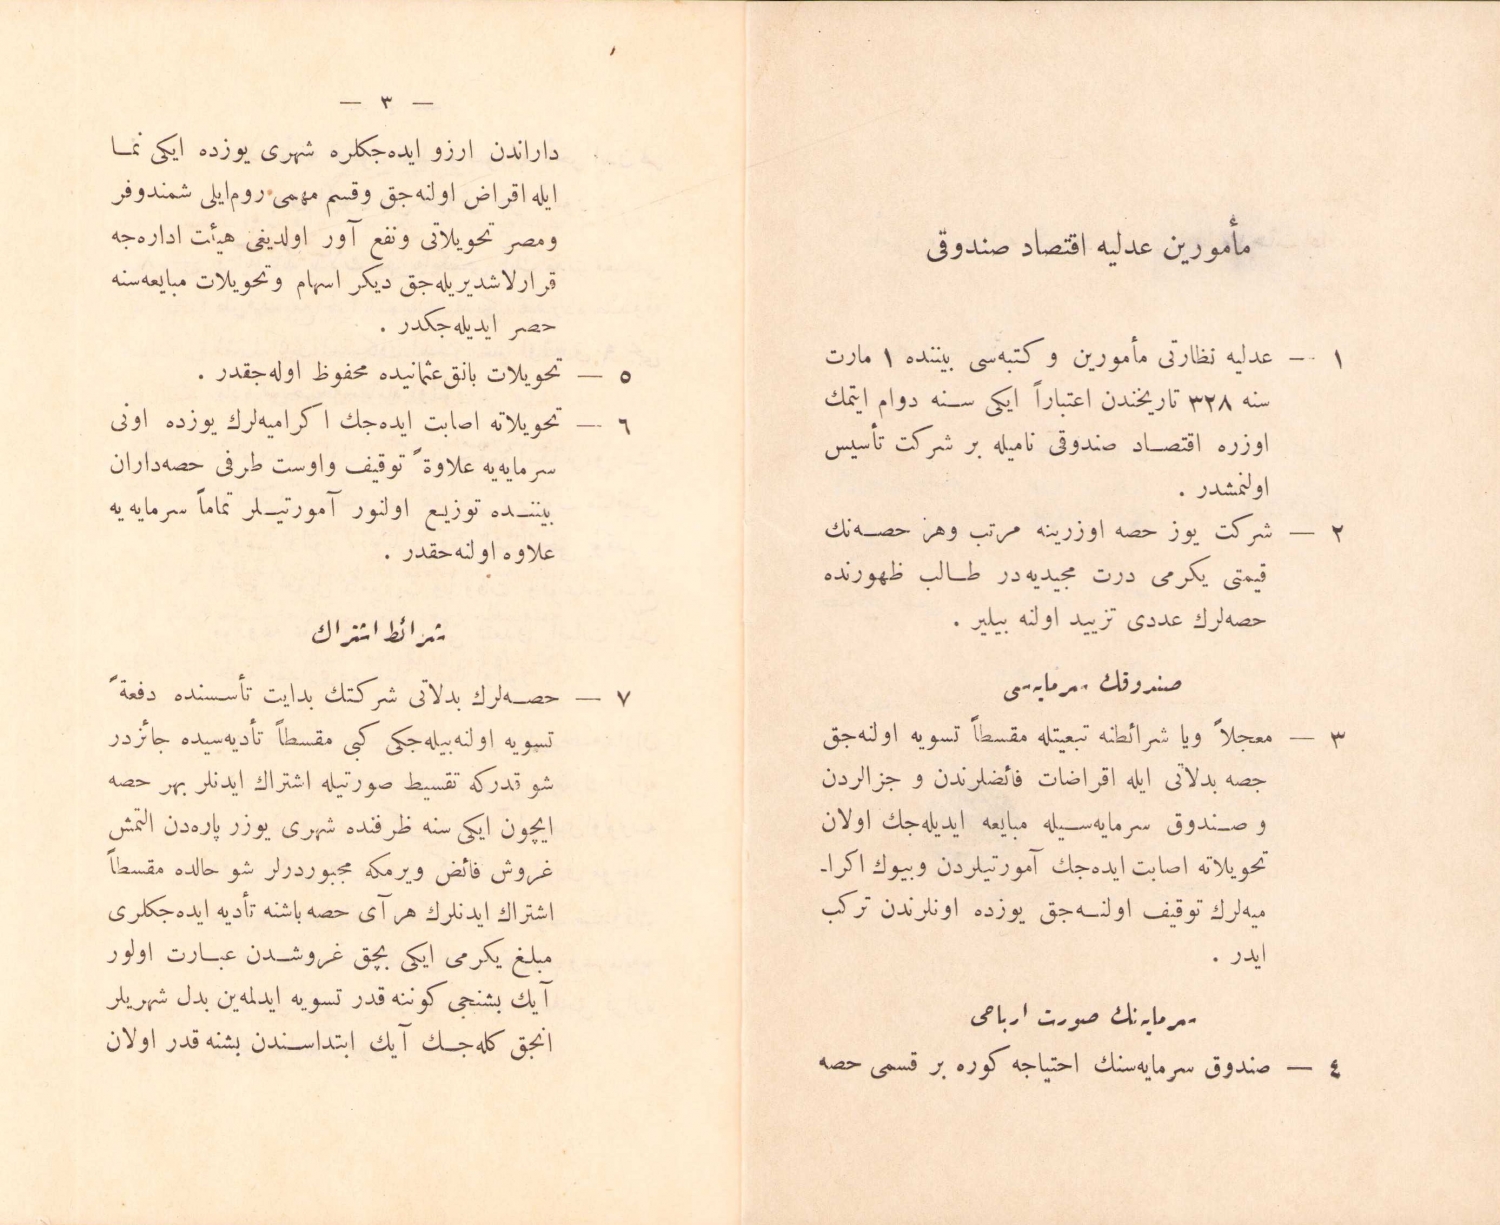 مأمورین عدلیه اقتصاد صندوقی
١ — عدلیه نظارتی مأمورین و كتبه‌سی بیننده ١ مارت
سنه ٣٢٨ تاریخندن اعتباراً ایكی سنه دوام ایتمك
اوزره اقتصاد صندوقی نامیله بر شركت تأسیس
اولنمشدر .
٢ — شركت یوز حصه اوزرینه مرتب وهر حصه‌نك
قیمتی یكرمی درت مجیدیه‌در طالب ظهورنده
حصه‌لرك عددی تزیید اولنه بیلیر .
صندوقك سرمایه‌سی
٣ — معجلاً ویا شرائطنه تبعیتله مقسطاً تسویه اولنه‌جق
حصه بدلاتی ایله اقراضات فائضلرندن و جزالردن
و صندوق سرمایه‌سیله مبایعه ایدیله‌جك اولان
تحویلاته اصابت ایده‌جك آمورتیلردن وبیوك اكرا-
میه‌لرك توقیف اولنه‌جق یوزده اونلرندن تركب
ایدر .
سرمایه‌نك صورت ارباحی
٤ — صندوق سرمایه‌سنك احتیاجه كوره بر قسمی حصه
— ٣ —
داراندن ارزو ایده‌جكلره شهری یوزده ایكی نما
ایله اقراض اولنه‌جق وقسم مهمی روم‌ایلی شمندوفر
ومصر تحویلاتی ونفع آور اولدیغی هیأت اداره‌جه
قرارلاشدیریله‌جق دیكر اسهام وتحویلات مبایعه‌سنه
حصر ایدیله‌جكدر .
٥ — تحویلات بانق عثمانیده محفوظ اوله‌جقدر .
٦ — تحویلاته اصابت ایده‌جك اكرامیه‌لرك یوزده اونی
سرمایه‌یه علاوةً توقیف واوست طرفی حصه‌داران
بیننده توزیع اولنور آمورتیلر تماماً سرمایه‌یه
علاوه اولنه‌حقدر .
شرائط اشتراك
٧ — حصه‌لرك بدلاتی شركتك بدایت تأسسنده دفعةً
تسویه اولنه‌بیله‌جكی كبی مقسطاً تأدیه‌سیده جائزدر
شو قدركه تقسیط صورتیله اشتراك ایدنلر بهر حصه
ایچون ایكی سنه ظرفنده شهری یوزر پاره‌دن التمش
غروش فائض ویرمكه مجبوردرلر شو حالده مقسطاً
اشتراك ایدنلرك هر آی حصه باشنه تأدیه ایده‌جكلری
مبلغ یكرمی ایكی بچق غروشدن عبارت اولور
آیك بشنجی كوننه قدر تسویه ایدلمه‌ین بدل شهریلر
انجق كله‌جك آیك ابتداسندن بشنه قدر اولان